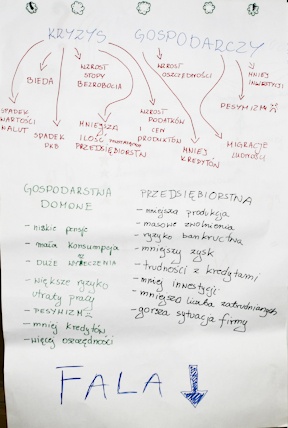 KRYZYS GOSPODARCZY
BIEDA
WZROST
STOPY
BEZROBOCIA
WZROST
OSZCZĘDNOŚCI
MNIEJ
INWESTYCJI
PESYMIZM
SPADEK
WARTOŚCI
WALUT
SPADEK
PKB
MNIEJSZA
ILOŚĆ
PRZEDSIĘBIORSTW
WZROST
PODATKÓW
I CEN
PRODUKTÓW
MNIEJ
KREDYTÓW
MIGRACJE
LUDNOŚCI
GOSPODARSTWA
DOMOWE
- niskie pensje
- mała konsumpcja
- DUŻE WYRZECZENIA
- większe ryzyko
utraty pracy
- PESYMIZM
- mniej kredytów
- więcej oszczędności
PRZEDSIĘBIORSTWA
- mniejsza produkcja
- masowe zwolnienia
- ryzyko bankructwa
- mniejszy zysk
- trudności z kredytami
- mniej inwestycji
- mniejsza liczba zatrudnianych
- gorsza sytuacja firmy
FALA